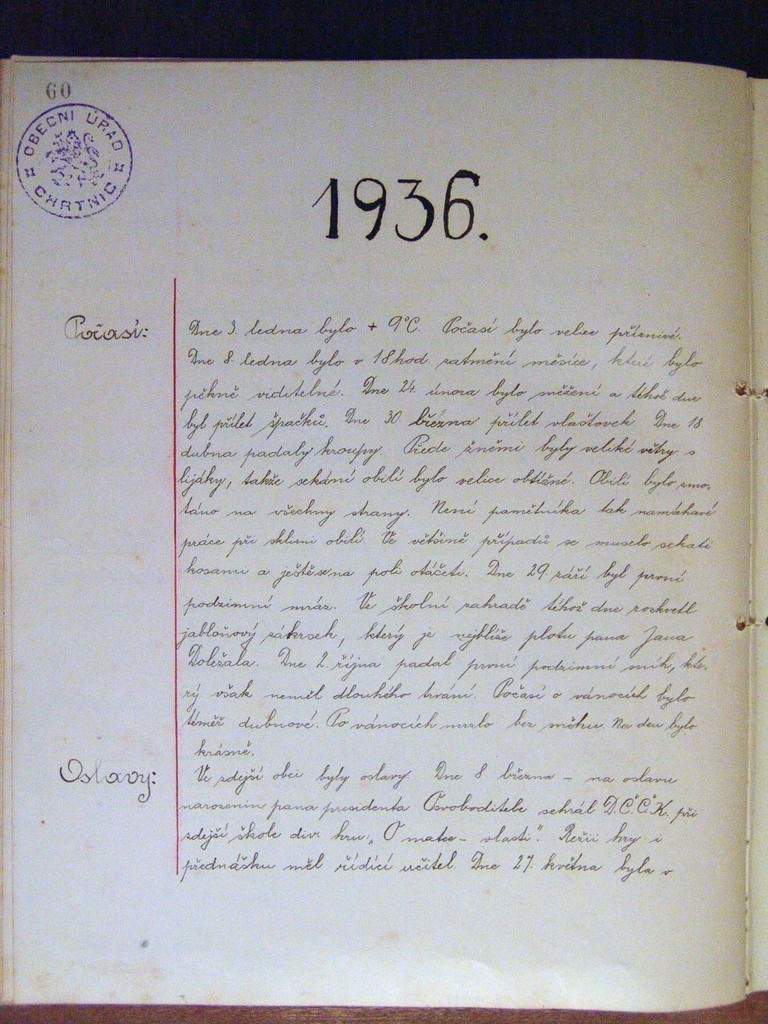 60
OBECNÍ ÚŘAD
CHRTNIC
1936.
Počasí:
Dne 3. ledna bylo + 9°C. Počasí bylo velice příznivé.
Dne 8. ledna bylo v 18 hod. zatmění měsíce, které bylo
pěkně viditelné. Dne 24. února bylo měření a téhož dne
byl přílet špačků. Dne 30. března přílet vlaštovek. Dne 18.
dubna padaly kroupy. Přede žněmi byly veliké větry s
lijáky, takže sekání obilí bylo velice obtížné. Obilí bylo zmo-
táno na všechny strany. Není pamětníka tak namáhavé
práce při sklizni obilí. Ve většině případů se muselo sekati
kosami a ještě na poli otáčeti. Dne 29. září byl první
podzimní mráz. Ve školní zahradě téhož dne rozkvetl
jabloňový zákrsek, který je nejblíže plotu pana Jana
Doležala. Dne 2. října padal první podzimní sníh, kte-
rý však neměl dlouhého trvání. Počasí o vánocích bylo
téměř dubnové. Po vánocích mrzlo bez sněhu. Na den bylo
krásně.
Oslavy:
Ve zdejší obci byly oslavy. Dne 8. března – na oslavu
narozenin pana presidenta Osvoboditele sehrál D.Č.Č.K. při
zdejší škole div. hru: „O matce – vlasti". Režii hry i
přednášku měl řídící učitel. Dne 27. května byla v